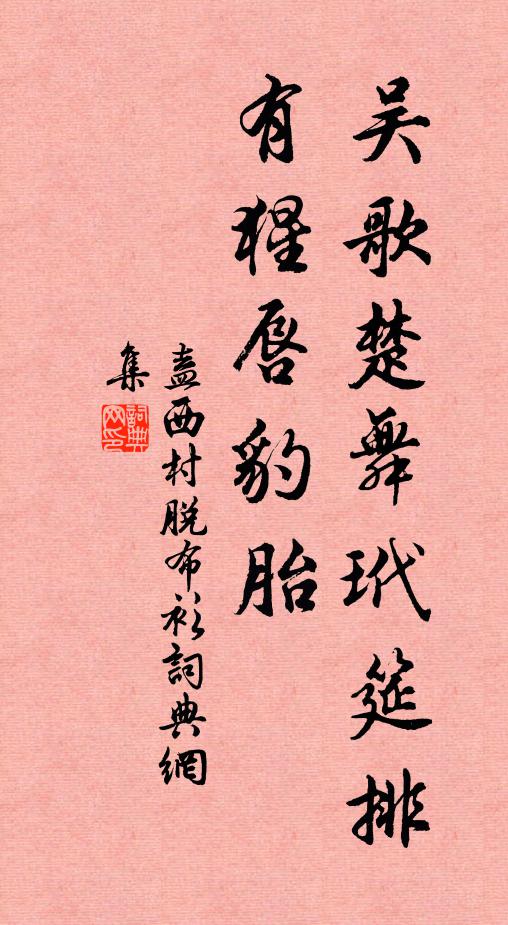 吴歌楚舞玳筵排
有猩唇豹胎
盍西村脱布衫詞典網
集
詞典
网印